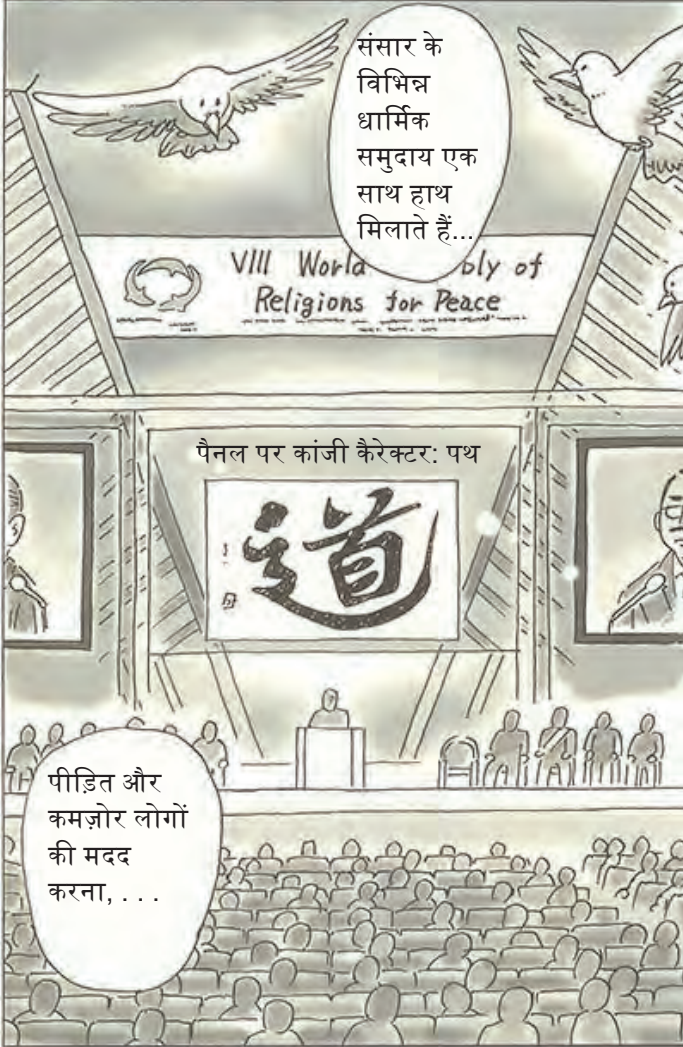 संसार के
विभिन्न
धार्मिक
समुदाय एक
साथ हाथ
मिलाते हैं...
VIII World bly of
Religions for Peace
पैनल पर कांजी कैरेक्टर: पथ
道
पीड़ित और
कमज़ोर लोगों
की मदद
करना, . . .